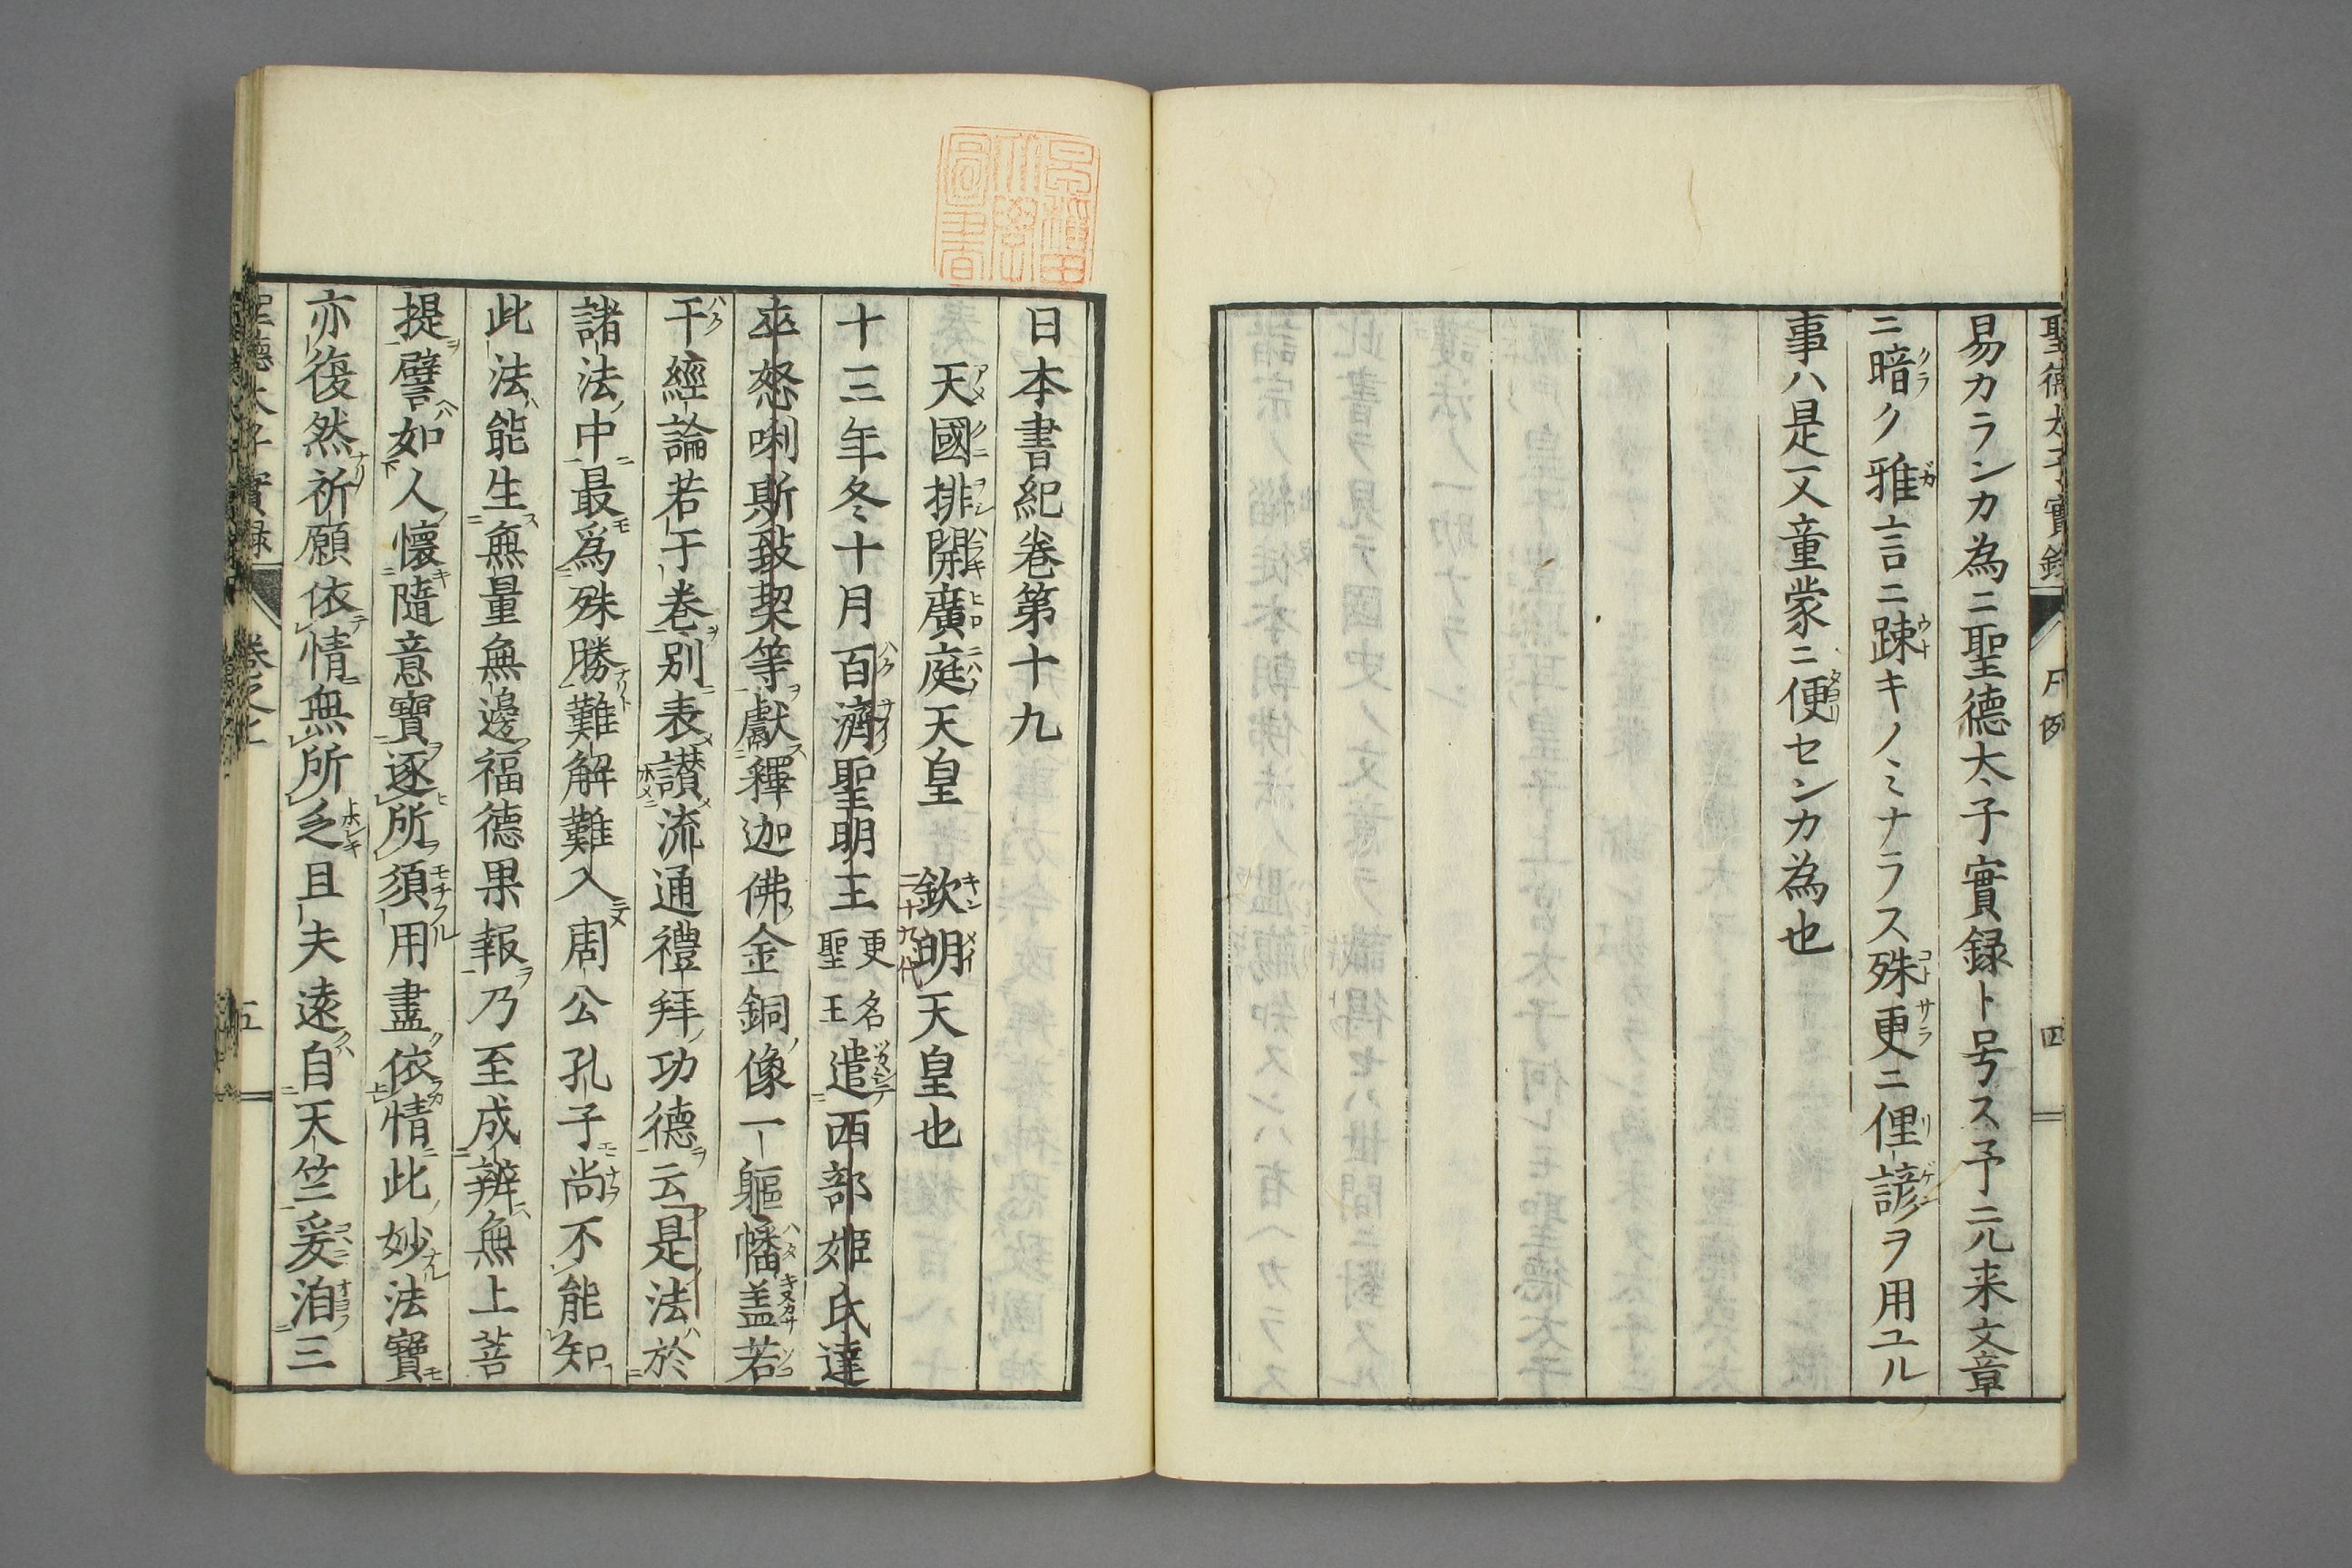 聖德太子實録 凡例 四
易カランカ為ニ聖德太子實録ト号ス予ニ元来文章
ニ暗ク雅言ニ踈キノミナラス殊更ニ俚諺ヲ用ユル
事ハ是又童蒙ニ便センカ為也
日本書紀卷第十九
天國排開廣庭天皇 欽明天皇也
二十九代
十三年冬十月百濟聖明王更名聖王遣西部姫氏達
卒怒唎斯致契等獻釋迦佛金銅像一軀幡盖若
干經論若于卷別表讃流通禮拜功德云是法於
諸法中最爲殊勝難解難入周公孔子尚不能知
此法能生無量無邊福德果報乃至成辨無上菩
提譬如人懷隨意寶逐所須用盡依情此妙法寶
亦復然祈願依情無所乏且夫遠自天竺爰洎三
聖德太子實録 卷之上 五